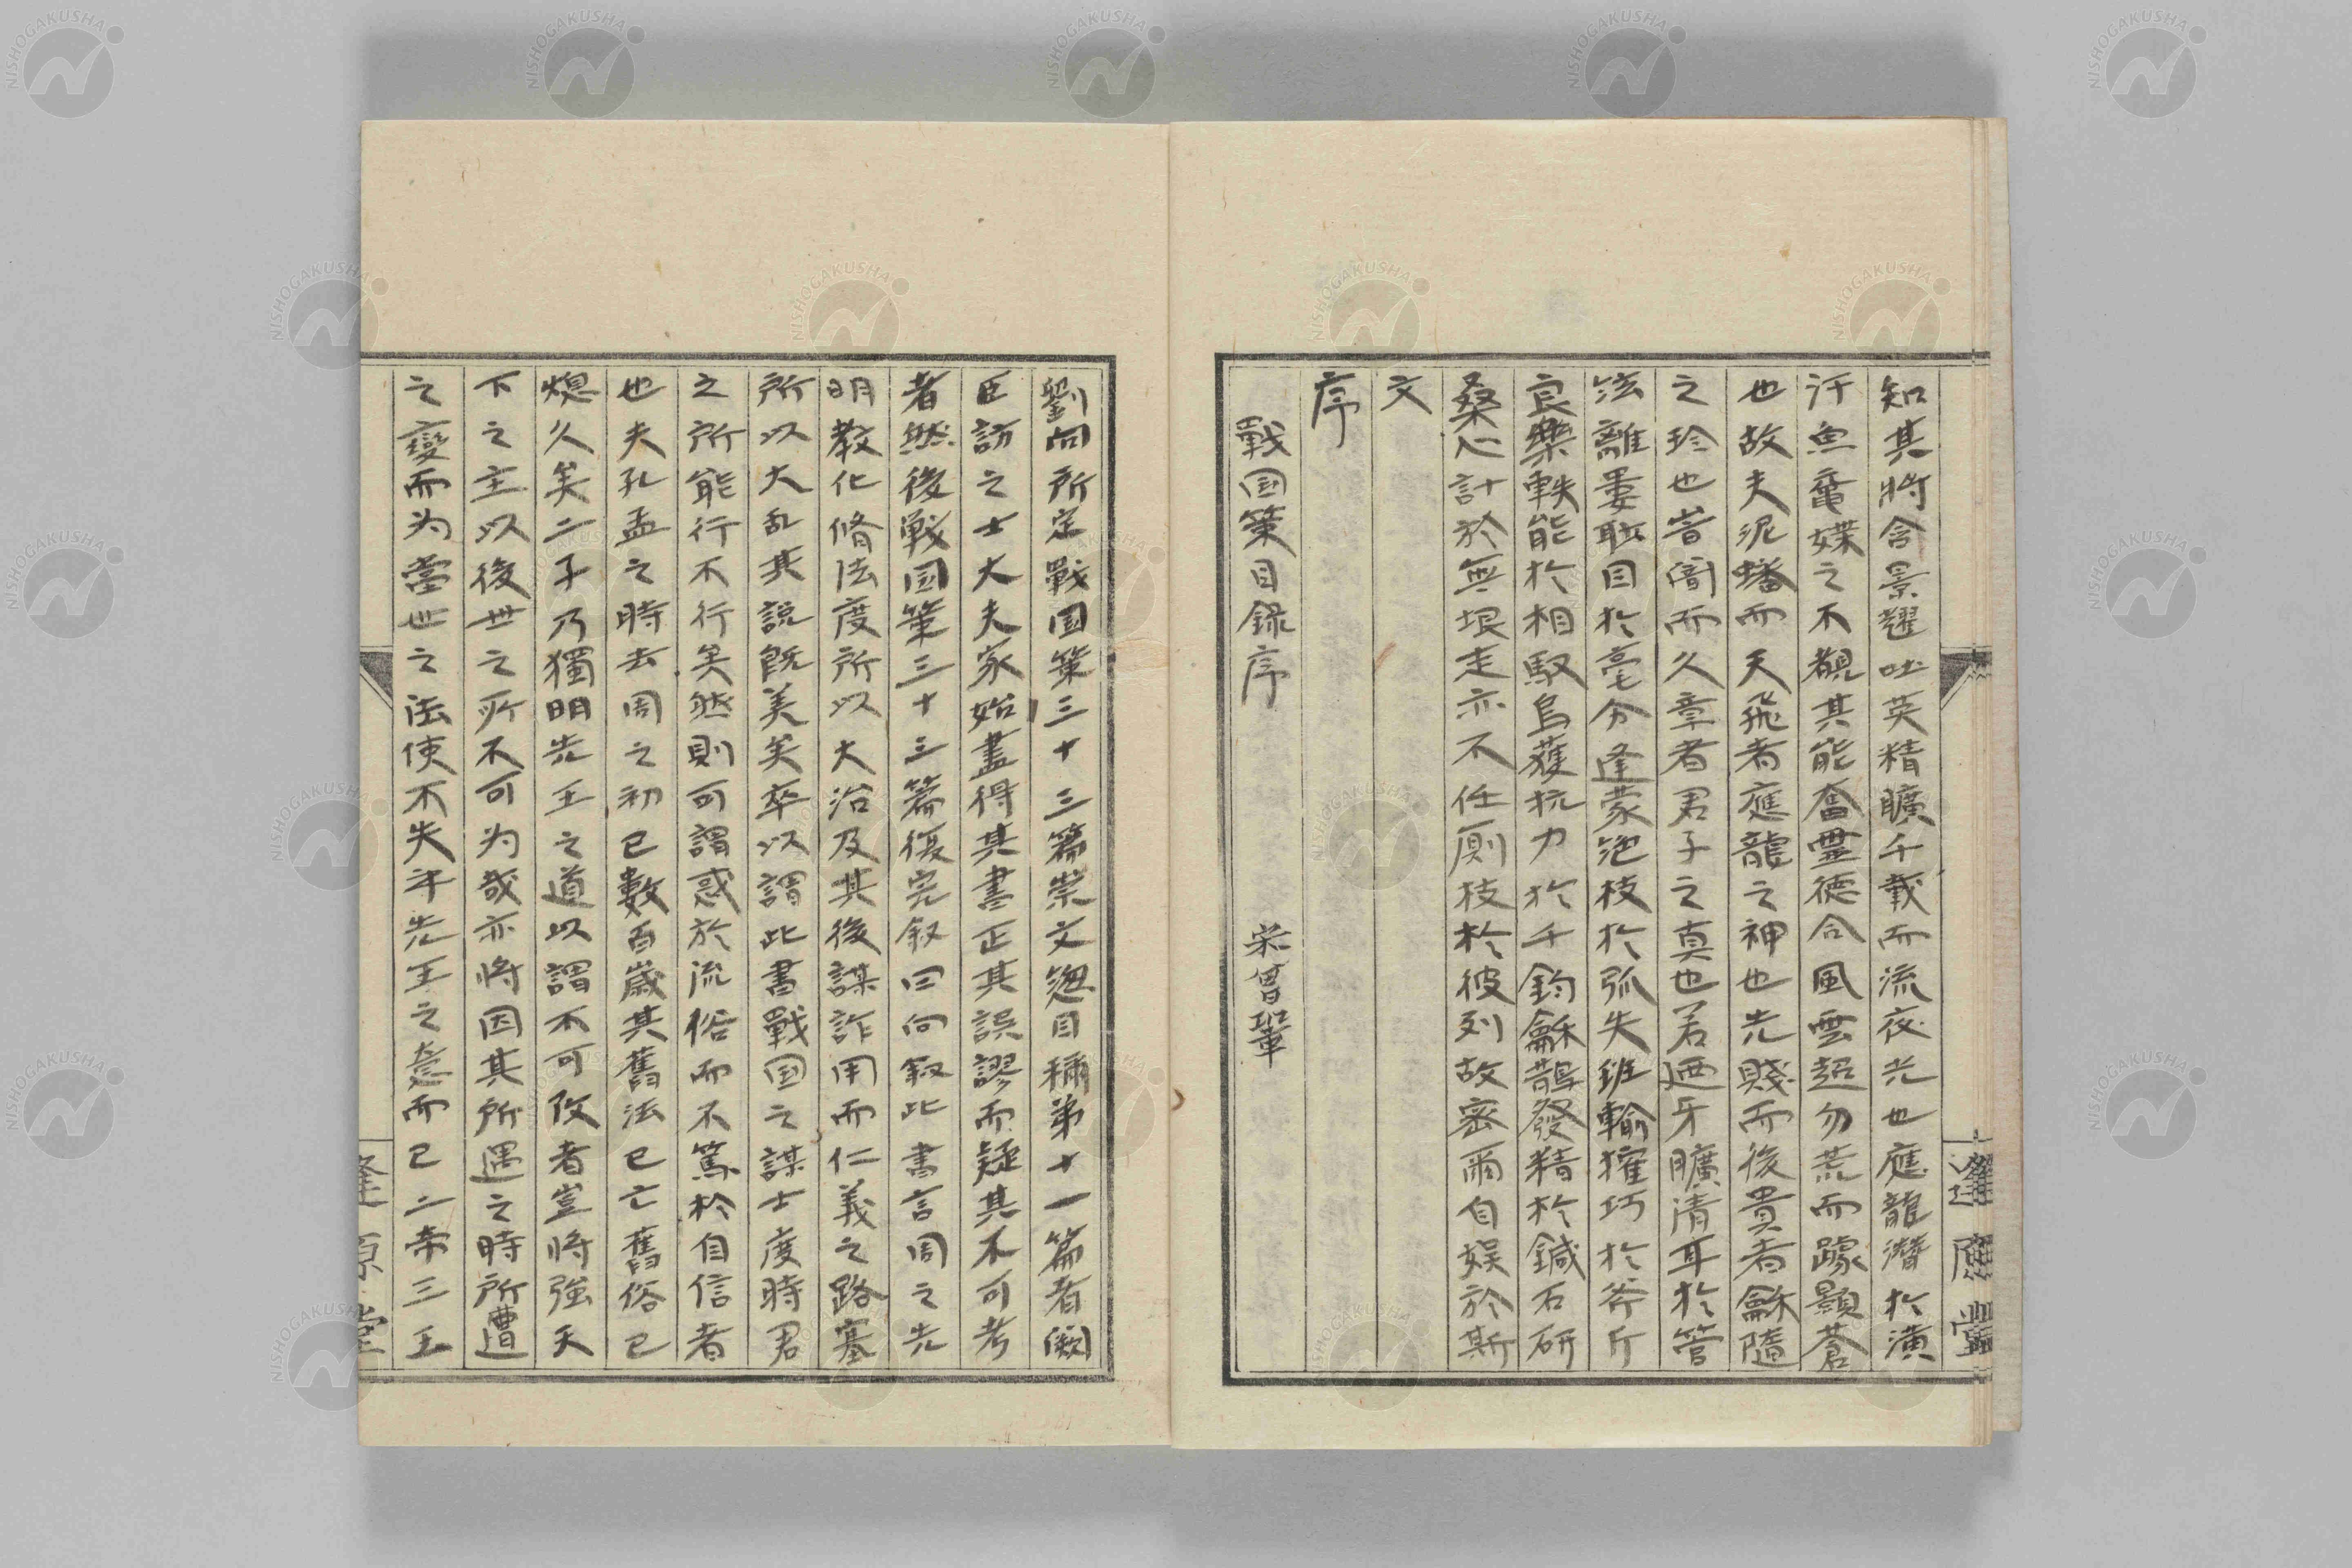 知其將含景耀吐英精曠千載而流夜光也應龍潛於潢
汙魚黿媟之不覩其能奮霊德合風雲超勿荒而躆顥蒼
也故夫泥蟠而天飛者應龍之神也先賤而後貴者龢隨
之珍也岢闇而久章者君子之真也若廼牙曠清耳於管
弦離婁眡目於毫分逢蒙绝技於弧矢班輸搉巧於斧斤
良樂軼能於相馭烏獲抗力於千鈞龢鵲發精於鍼石研
桑心計於無垠走亦不任厠技於彼列故密爾自娱於斯
文
序
戰国策目録序 宋曾鞏
劉向所定戰国策三十三篇崇文緫目稱第十一篇者闕
臣訪之士大夫家始盡得其書正其誤謬而疑其不可考
者然後戰国策三十三篇復完叙曰向叙此書言周之先
明教化脩法度所以大治及其後謀詐用而仁義之路塞
所以大乱其說既美矣卒以謂此書戰国之謀士度時君
之所能行不行矣然則可謂惑於流俗而不篤於自信者
也夫孔孟之時去周之初已數百歳其舊法已亡舊俗已
熄久矣二子乃獨明先王之道以謂不可改者豈將強天
下之主以後世之所不可为哉亦將因其所遇之時所遭
之變而为當世之法使不失乎先王之意而已二帝三王
逢原堂
NISHOGAKUSHA